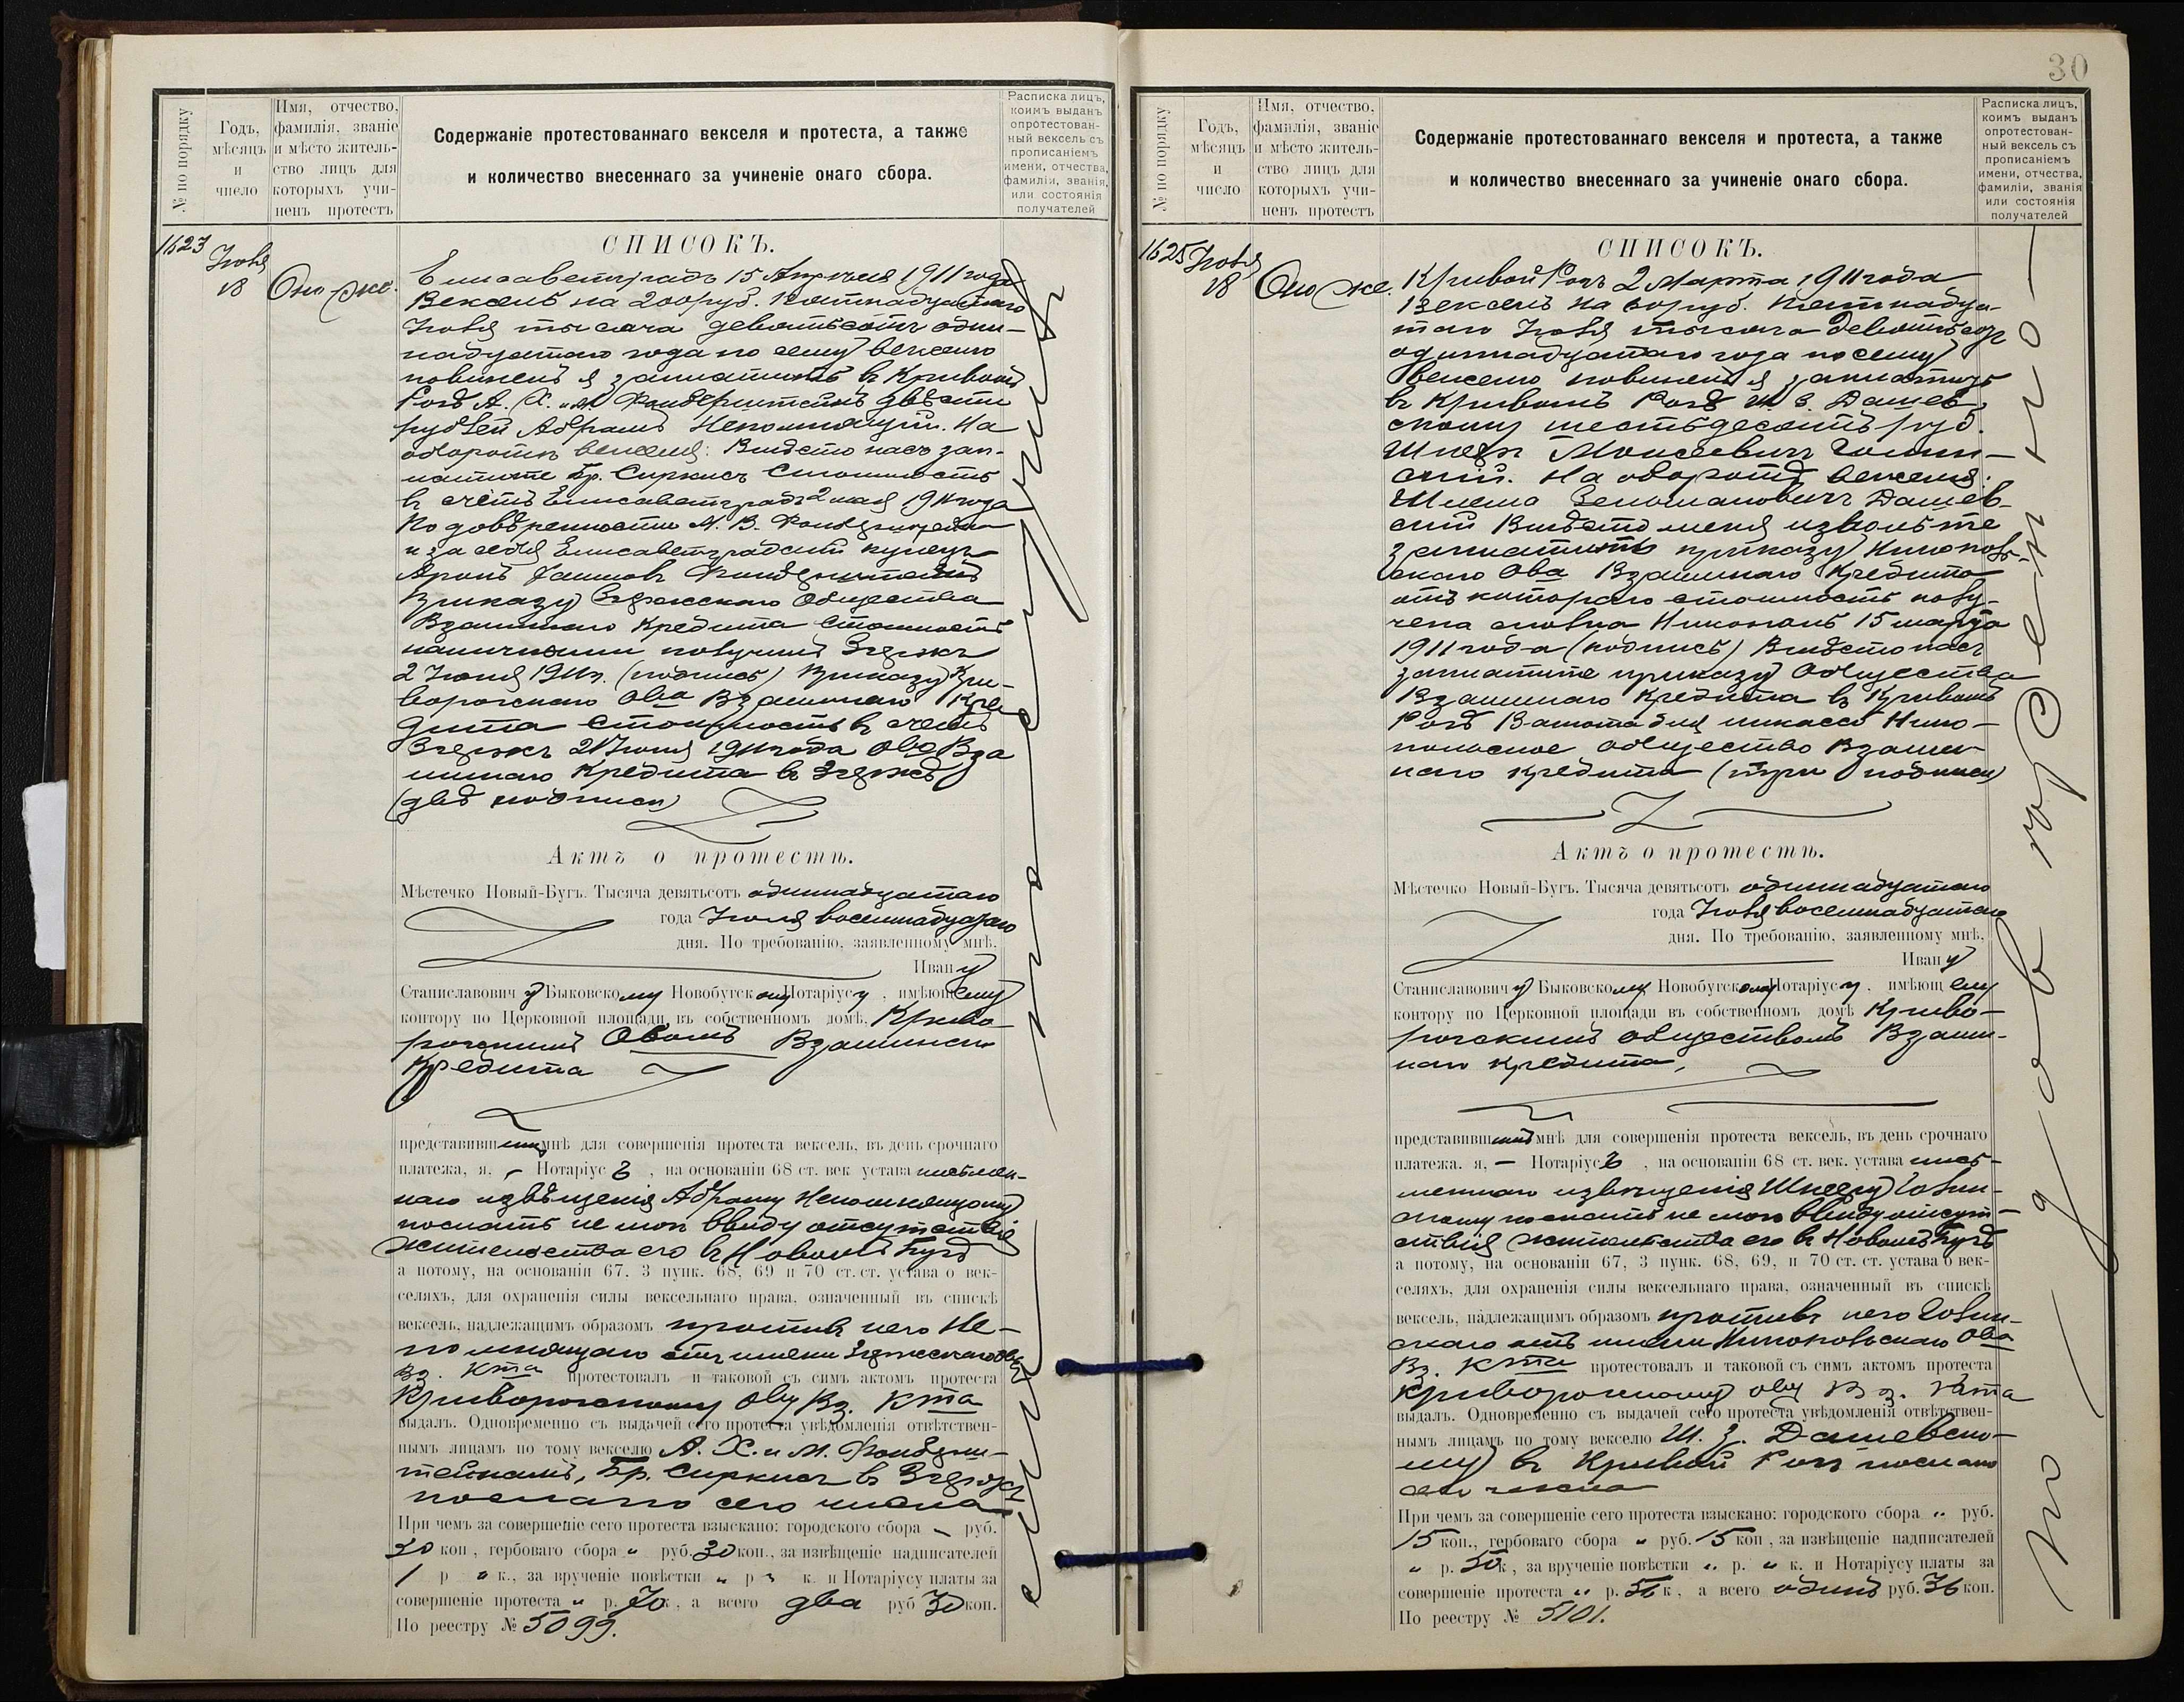 № по порядку
Годъ, мѣсяцъ и число
Имя, отчество, фамилія, званіе и мѣсто жительство лицъ для которыхъ учиненъ протестъ
Содержаніе протестованнаго векселя и протеста, а также
и количество внесеннаго за учиненіе онаго сбора.
Расписка лицъ, коимъ выданъ опротестованный вексель съ прописаніемъ имени, отчества, фамиліи, званія, или состоянія получателей
1623
18
Оно же.
СПИСОКЪ.
Елисаветградъ 15 Апрѣля 1911 года
Вексель на 200 руб. Пятнадцатаго
тысяча девятьсотъ один-
надцатаго года по сему векселю
повиненъ я заплатить въ Кривомъ
Рогѣ А. Х. и М. двѣсти
рублей Абрамъ Непомнящій. На
оборотѣ векселя: Вмѣсто насъ зап-
латите Бр. Сиркисъ Стоимость
въ счетъ Елисаветградъ 2 мая 1911 года
По довѣренности М. В.
и за себя Елисаветградскій купецъ
Аронъ
Приказу Общества
Взаимнаго Кредита Стоимость
наличными получили
2 Іюня 1911 г. (подпись) Приказу Кри-
ворожскаго Ова Взаимнаго Кре
дита Стоимость въ счетъ
21 Іюня 1911 года Ово Вза
имнаго Кредита въ
(двѣ подписи)
Актъ о протестѣ.
Мѣстечко Новый-Бугъ. Тысяча девятьсотъ одиннадцатаго
года Іюля восемнадцатаго
дня. По требованію, заявленному мнѣ,
Ивану
Станиславовичу Быковскому Новобугскому Нотаріусу, имѣющему
контору по Церковной площади, въ собственномъ домѣ, Криво
рожскимъ Овомъ Взаимнаго
Кредита
представившимъ мнѣ для совершенія протеста вексель, въ день срочнаго
платежа, я, - Нотаріусъ, на основаніи 68 ст. век устава письмен-
наго извѣщенія Абраму Непомнящему
послать не могъ ввиду отсутствія
жительства его въ Новомъ Бугѣ
а потому, на основаніи 67. 3 пунк. 68, 69 и 70 ст. ст. устава о век-
селяхъ, для охраненія силы вексельнаго права, означенный въ спискѣ
вексель, надлежащимъ образомъ противъ него Не-
помнящаго отъ имени Ова
Вз. Кта протестовалъ и таковой съ симъ актомъ протеста
Криворожскому Ову Вз. Кта
выдалъ. Одновременно съ выдачей сего протеста увѣдомленія отвѣтствен-
нымъ лицамъ по тому векселю А. Х. и М.
Бр. Сиркисъ въ
послано сего числа
При чемъ за совершеніе сего протеста взыскано: городского сбора - руб.
30 коп., гербоваго сбора " руб. 30 коп., за извѣщеніе надписателей
1 р " к., за врученіе повѣстки " р " к. и Нотаріусу платы за
совершеніе протеста " р. 70 к., а всего два руб 30 коп.
По реестру № 5099.
30
№ по порядку
Годъ, мѣсяцъ и число
Имя, отчество, фамилія, званіе и мѣсто жительство лицъ для которыхъ учиненъ протестъ
Содержаніе протестованнаго векселя и протеста, а также
и количество внесеннаго за учиненіе онаго сбора.
Расписка лицъ, коимъ выданъ опротестованный вексель съ прописаніемъ имени, отчества, фамиліи, званія или состоянія получателей
1625
18
Оно же.
СПИСОКЪ.
Кривой Рогъ 2 Марта 1911 года
Вексель на 60 руб. Пятнадца-
таго тысяча девятьсотъ
одиннадцатаго года по сему
векселю повиненъ я заплатить
въ Кривомъ Рогѣ Ш. З. Дашев-
скому шестьдесятъ руб.
Моисеевичъ
На оборотѣ векселя:
Шлема Дашев-
скій Вмѣсто меня извольте
заплатить приказу Никополь-
скаго Ова Взаимнаго Кредита
отъ котораго стоимость полу-
чена сполна Никополь 15 марта
1911 года (подпись) Вмѣсто насъ
заплатите приказу Общества
Взаимнаго Кредита въ Кривомъ
Рогѣ Валюта для инкассо Нико-
польское общество Взаим-
наго кредита (три подписи)
Актъ о протестѣ.
Мѣстечко Новый-Бугъ. Тысяча девятьсотъ одиннадцатаго
года Іюля восемнадцатаго
дня. По требованію, заявленному мнѣ,
Ивану
Станиславовичу Быковскому Новобугскому Нотаріусу, имѣющему
контору по Церковной площади въ собственномъ домѣ Криво-
рожскимъ обществомъ Взаим-
наго кредита,
представившимъ мнѣ для совершенія протеста вексель, въ день срочнаго
платежа. я, - Нотаріусъ, на основаніи 68 ст. век. устава пись-
меннаго извѣщенія
послать не могъ ввиду отсут-
ствія жительства его въ Новомъ Бугѣ
а потому, на основаніи 67, 3 пунк. 68, 69, и 70 ст. ст. устава о век-
селяхъ, для охраненія силы вексельнаго права, означенный въ спискѣ
вексель, надлежащимъ образомъ противъ него
отъ имени Никопольскаго Ова
Вз. Кта протестовалъ и таковой съ симъ актомъ протеста
Криворожскому Ову Вз. Кта
выдалъ. Одновременно съ выдачей сего протеста увѣдомленія отвѣтствен-
нымъ лицамъ по тому векселю Ш. З. Дашевско-
му въ Кривой Рогъ послано
сего числа
При чемъ за совершеніе сего протеста взыскано: городского сбора " руб.
15 коп., гербоваго сбора " руб. 15 коп, за извѣщеніе надписателей
" р. 50 к, за врученіе повѣстки " р. " к. и Нотаріусу платы за
совершеніе протеста " р. 56 к, а всего одинъ руб. 36 коп.
По реестру № 5101.